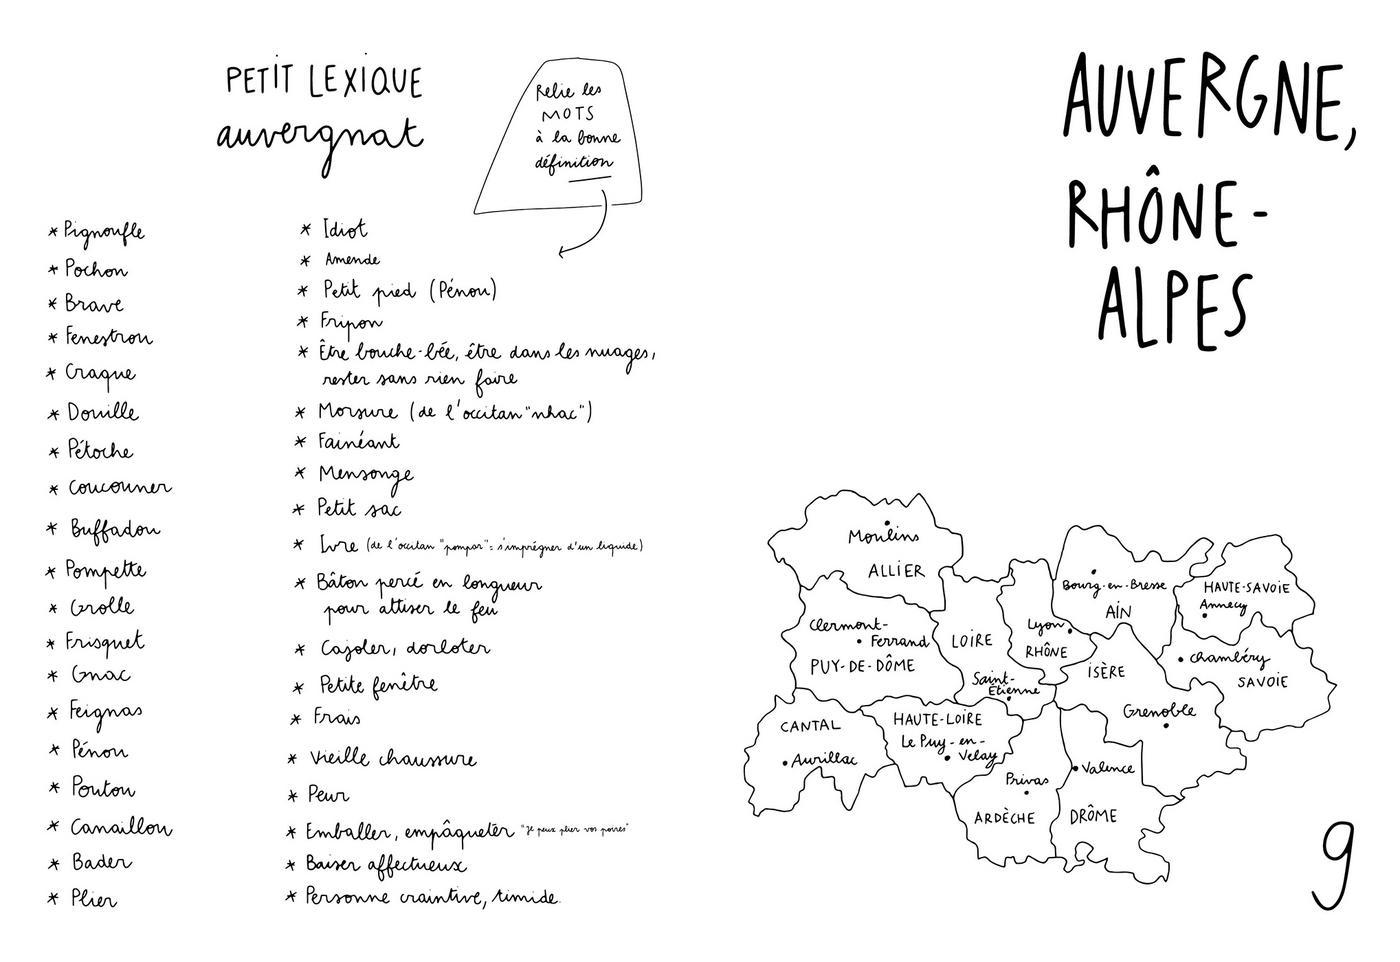 PETIT LEXIQUE
auvergnat
Relie les
MOTS
à la bonne
définition
* Pignoufle
* Pochon
* Brave
* Fenestrou
* Craque
* Douille
* Pétoche
* Coucouner
* Buffadou
* Pompette
* Grolle
* Frisquet
* Gnac
* Feignas
* Pénou
* Poutou
* Canaillou
* Bader
* Plier
* Idiot
* Amende
* Petit pied (Pénou)
* Fripon
* Être bouche-bée, être dans les nuages,
rester sans rien faire
* Morsure (de l'occitan "nhac")
* Fainéant
* Mensonge
* Petit sac
* Ivre (de l'occitan "pompar" = s'imprégner d'un liquide)
* Bâton percé en longueur
pour attiser le feu
* Cajoler, dorloter
* Petite fenêtre
* Frais
* Vieille chaussure
* Peur
* Emballer, empâqueter "Je peux plier vos poires"
* Baiser affectueux
* Personne craintive, timide.
AUVERGNE,
RHÔNE-
ALPES
Moulins
ALLIER
Bourg-en-Bresse
AIN
HAUTE-SAVOIE
Annecy
Clermont-
Ferrand
PUY-DE-DÔME
LOIRE
Saint-
Étienne
Lyon
RHÔNE
ISÈRE
Grenoble
Chambéry
SAVOIE
CANTAL
Aurillac
HAUTE-LOIRE
Le Puy-en-
Velay
Privas
ARDÈCHE
Valence
DRÔME
9